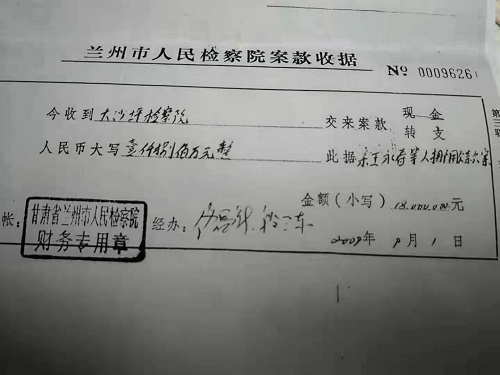 兰州市人民检察院案款收据
№ 0009626
今收到 大沙坪检察院 交来案款 现金
转支
人民币大写 壹仟捌佰万元整 此据
金额（小写） 18.000.000 元
帐： 甘肃省兰州市人民检察院
财务专用章
经办：
2009年 9月 1日